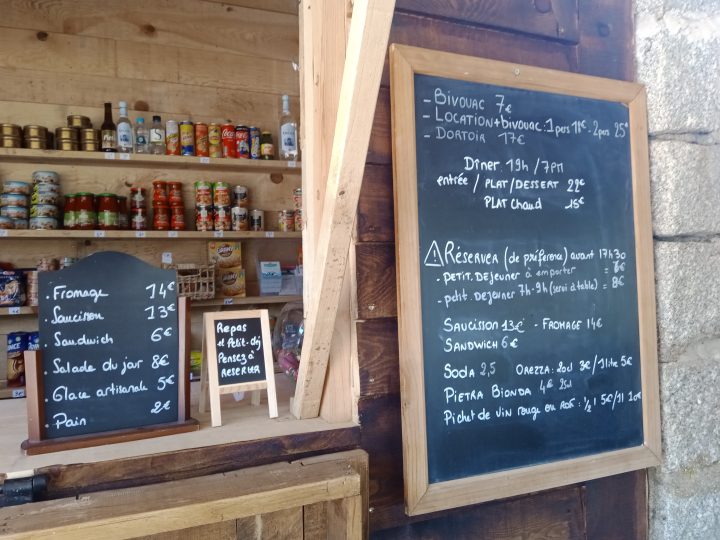 . Fromage 14€
. Saucisson 13€
. Sandwich 6€
. Salade du jar 8€
. Glace artisanale 5€
. Pain 2€
Repas
et Petit-dej
Pensez à
RESERVER
- BIVOUAC 7€
- LOCATION+bivouac : 1 pers 18€ - 2 pers 25€
- DORTOIR 17€
Dîner 19h / 7PM
entrée / PLAT / DESSERT 22€
PLAT Chaud 15€
RÉSERVER (de préférence) avant 17h30
. PETIT. DEJEUNER à emporter = 6€
. petit. DEJEUNER 7h-9h (servi à table) = 8€
SAUCISSON 13€ - FROMAGE 14€
SANDWICH 6€
SODA 2,5 OREZZA: 20cl 3€/1 litre 5€
PIETRA BIONDA 4€ 25cl
Pichet de vin rouge ou ROSÉ : 1/2 l 5€/1l 10€
Coca-Cola